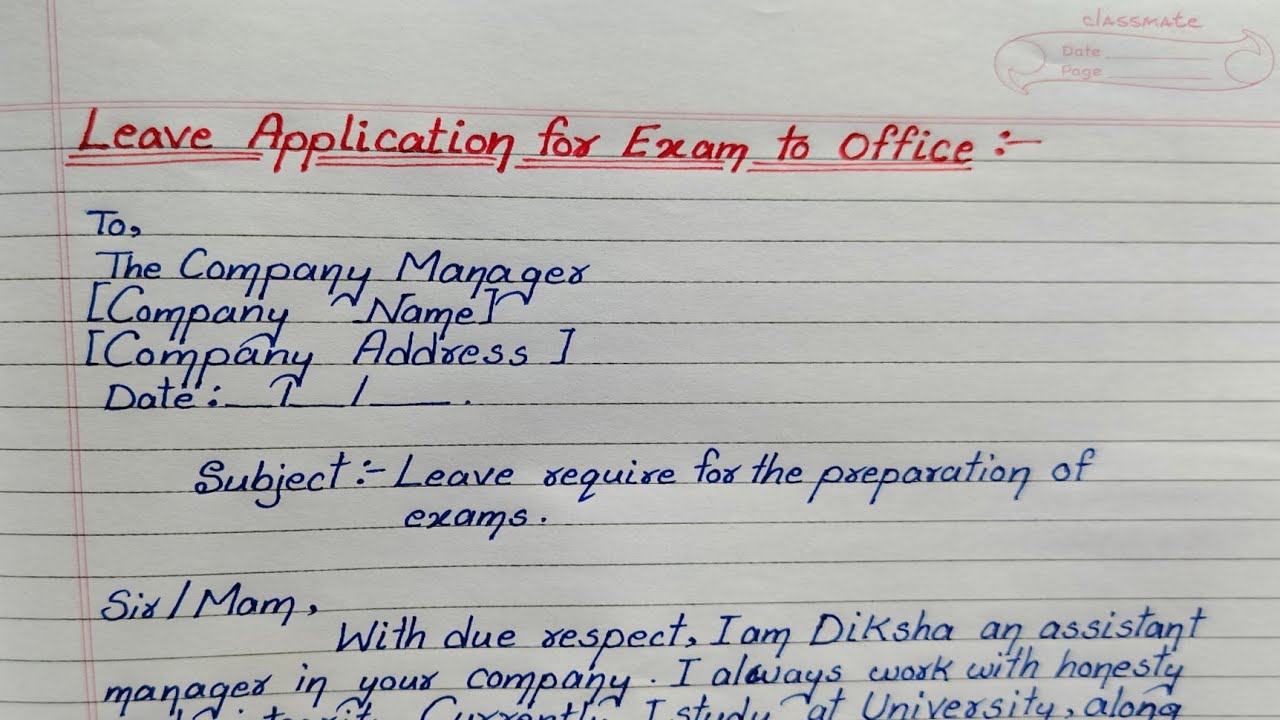 classmate
Date
Page
Leave Application for Exam to Office :-
To,
The Company Manager
[Company Name]
[Company Address]
Date:__/__/___.
Subject:- Leave require for the preparation of
exams.
Sir/Mam,
With due respect, I am Diksha an assistant
manager in your company. I always work with honesty
Currently I study at University, along